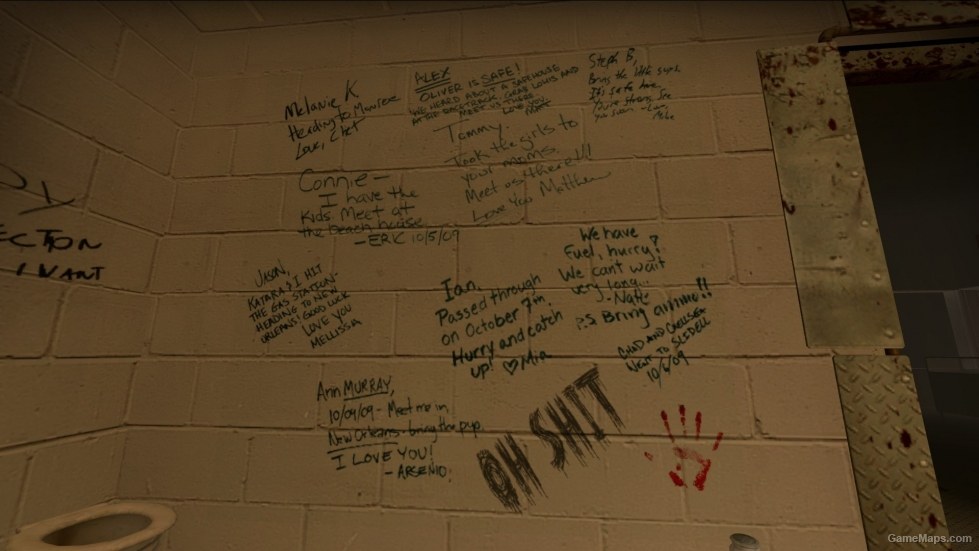 Melanie K
Heading to
Love, Chet
ALEX
OLIVER IS SAFE!
WE HEARD ABOUT A SAFEHOUSE
AT THE RACETRACK. GRAB LOUIS AND
MEET US THERE
LOVE YOU
Steph B,
Bring the little ones.
It's safe here.
Tommy.
Took the girls to
your moms.
Meet us there!!!
Love You Matthew
Connie—
I have the
kids. Meet at
the beach house
-ERIK 10/5/09
ECTION
I WANT
JASON,
KATARA & I HIT
THE GAS STATION-
HEADING TO NEW
ORLEANS! GOOD LUCK
LOVE YOU
MELLISSA
Ian,
Passed through
on October 7th.
Hurry and catch
up! ♡ Mia
We have
Fuel, hurry!
We cant wait
very long...
-Nate
P.S Bring ammo!!
CHAD AND CHELSEA
WENT TO SLIDELL
10/6/09
Ann MURRAY,
10/09/09 - Meet me in
New Orleans - bring the pup.
I LOVE YOU!
- ARSENIO.
OH SHIT
GameMaps.com